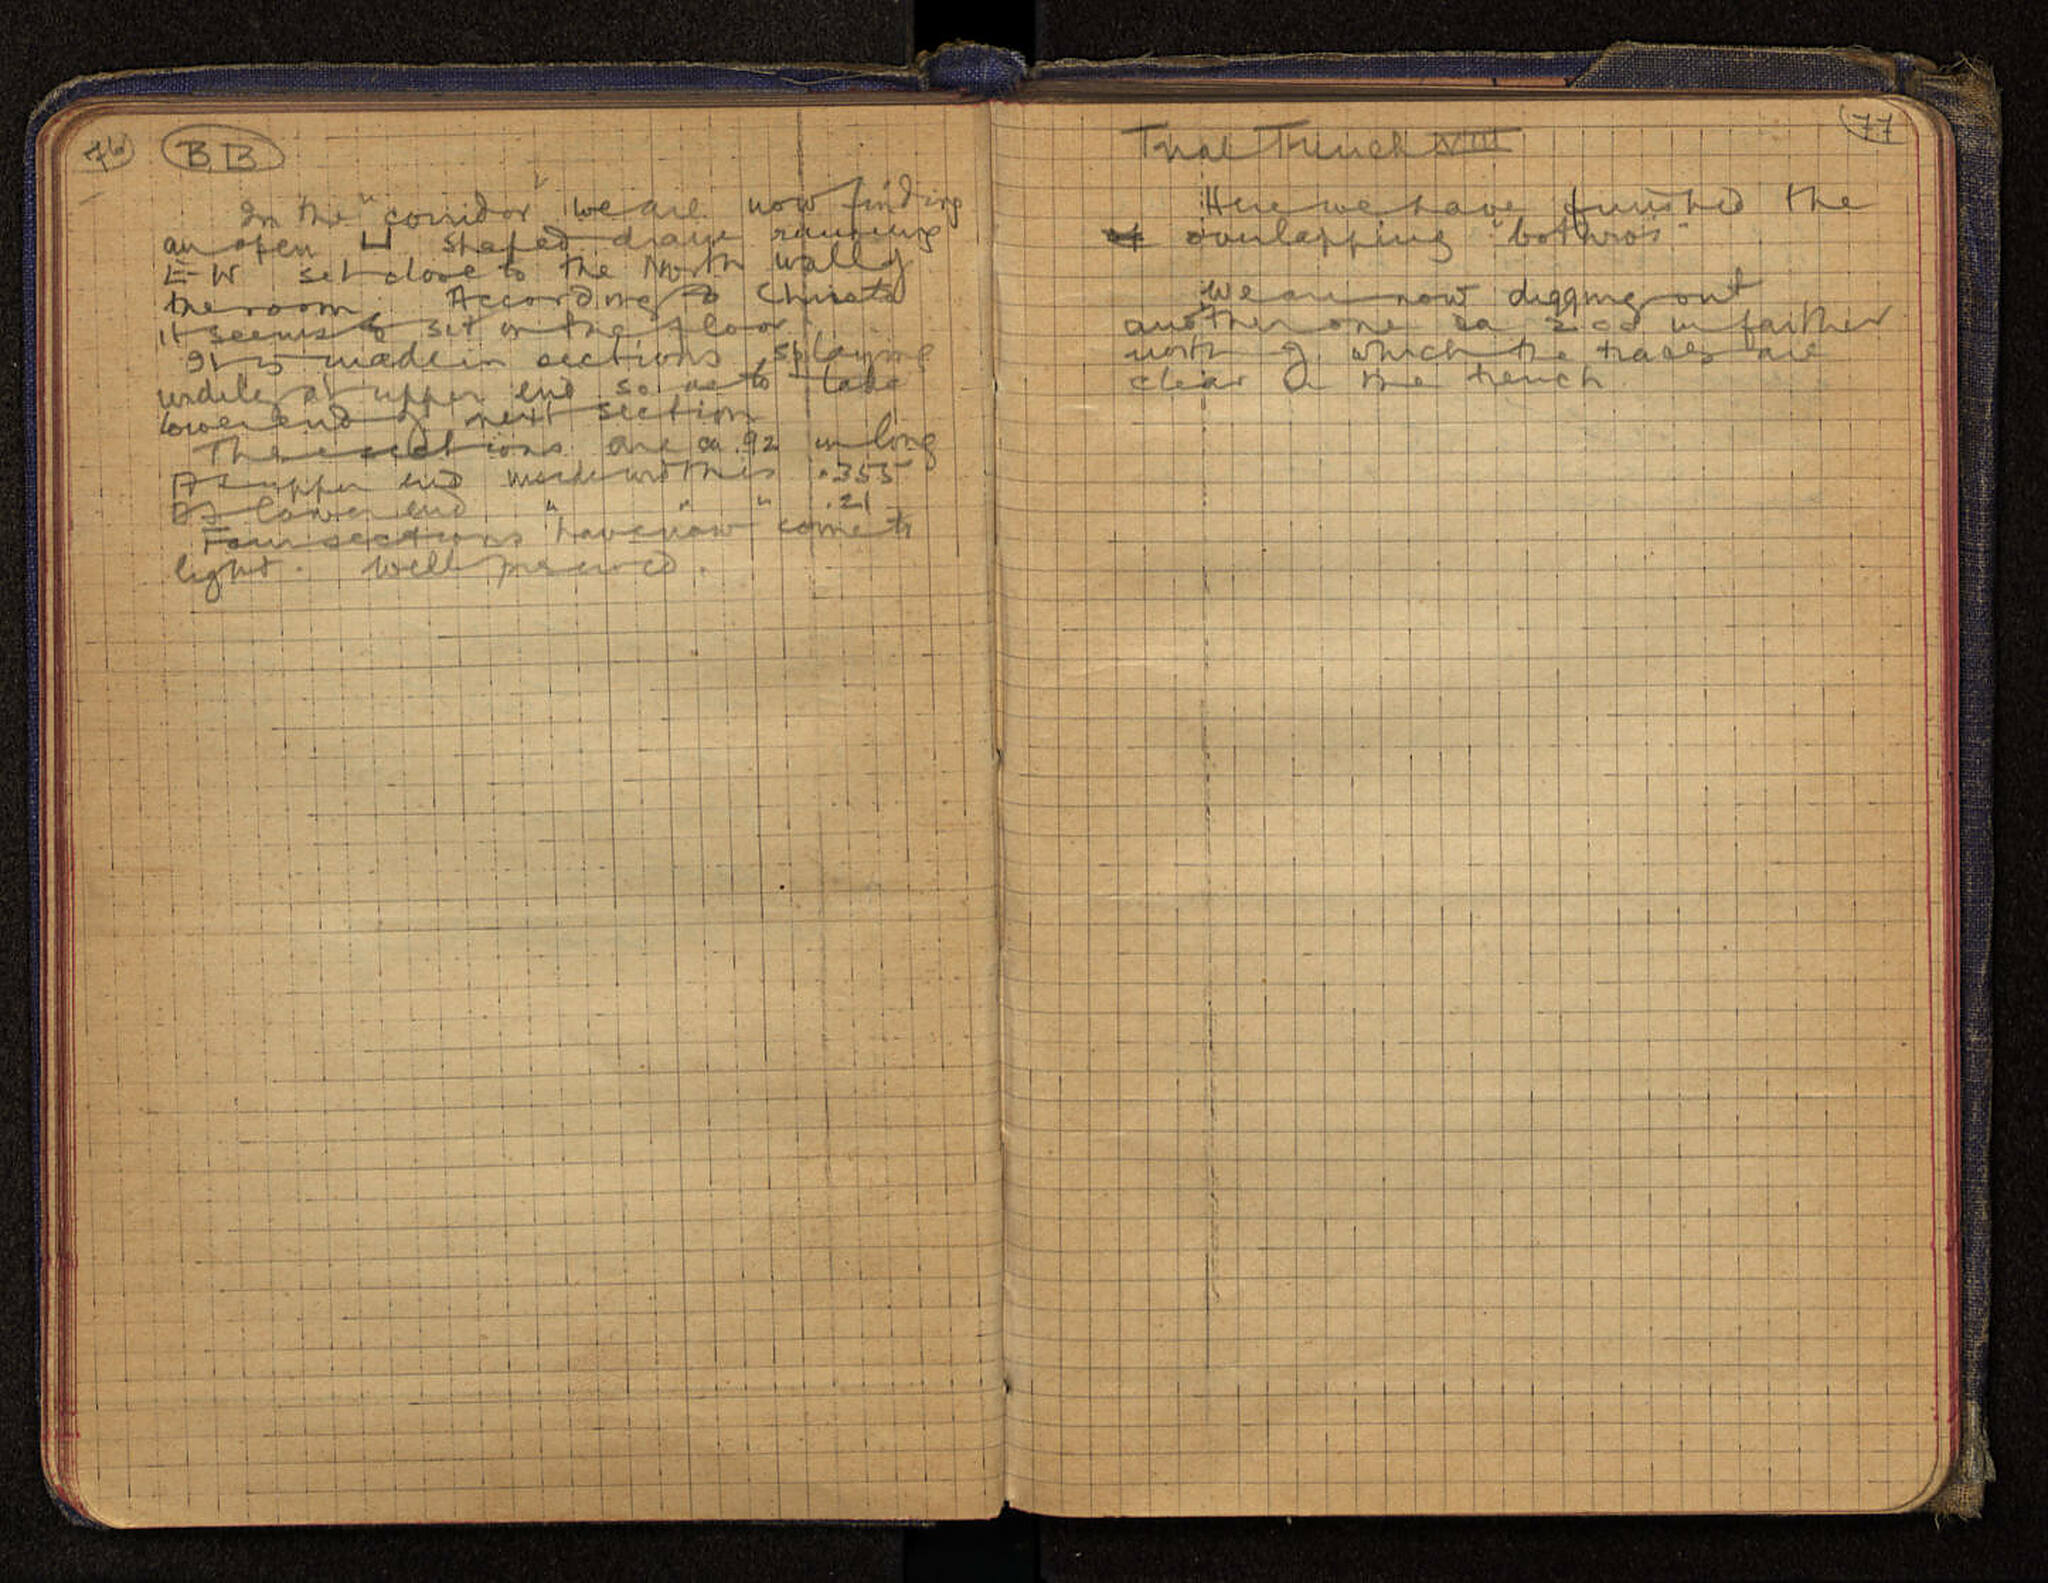 76 BB
In the "corridor" we are now finding
an open ⊔ shaped drain running
E-W set close to the North wall of
the room. According to Christo
it seems to set on the floor.
It is made in sections splaying
widely at upper end so as to take
lower end of next section
These sections are ca .92 m long
At upper end inside width is .355
At lower end " " " .21
Four sections have now come to
light. Well preserved.
77
Trial Trench VIII
Here we have finished the
overlapping "bothros".
We are now digging out
another one ca 2.00 m farther
north of which the traces are
clear in the trench